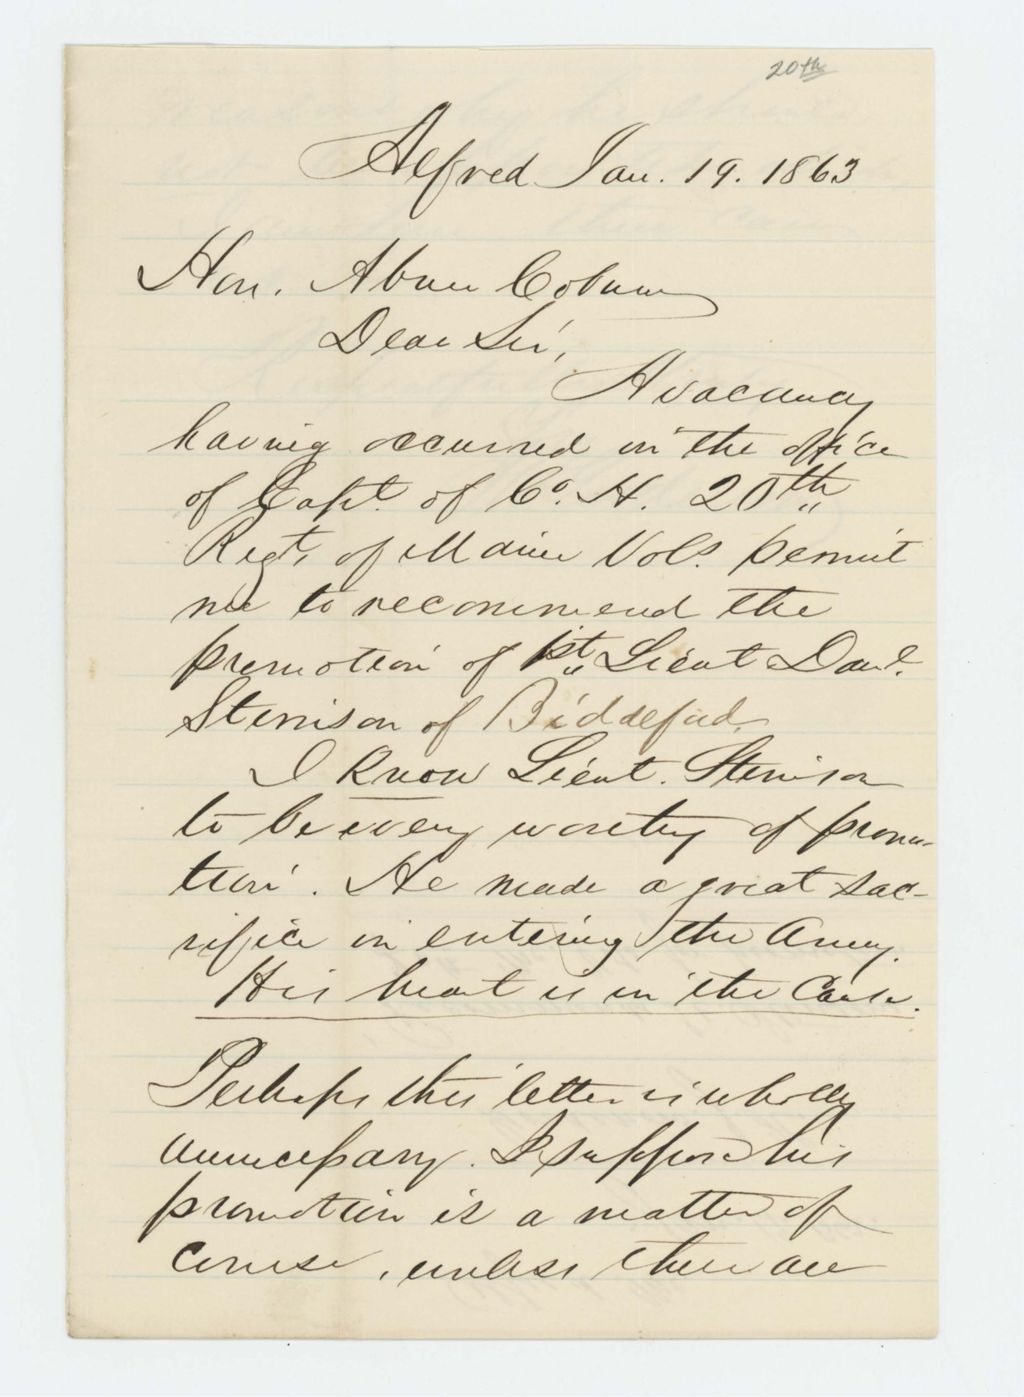 20th
Alfred Jan. 19. 1863
Hon. Abner Coburn
Dear Sir,
A vacancy
having occurred in the office
of Capt. of Co. H. 20th
Regt. of Maine Vols. permit
me to recommend the
promotion of 1st Lieut Danl.
Stimson of Biddeford.
I know Lieut. Stimson
to be every worthy of promo-
tion. He made a great sac-
rifice in entering the Army.
His heart is in the Cause.
Perhaps this letter is wholly
unnecessary. I suppose his
promotion is a matter of
course, unless there are